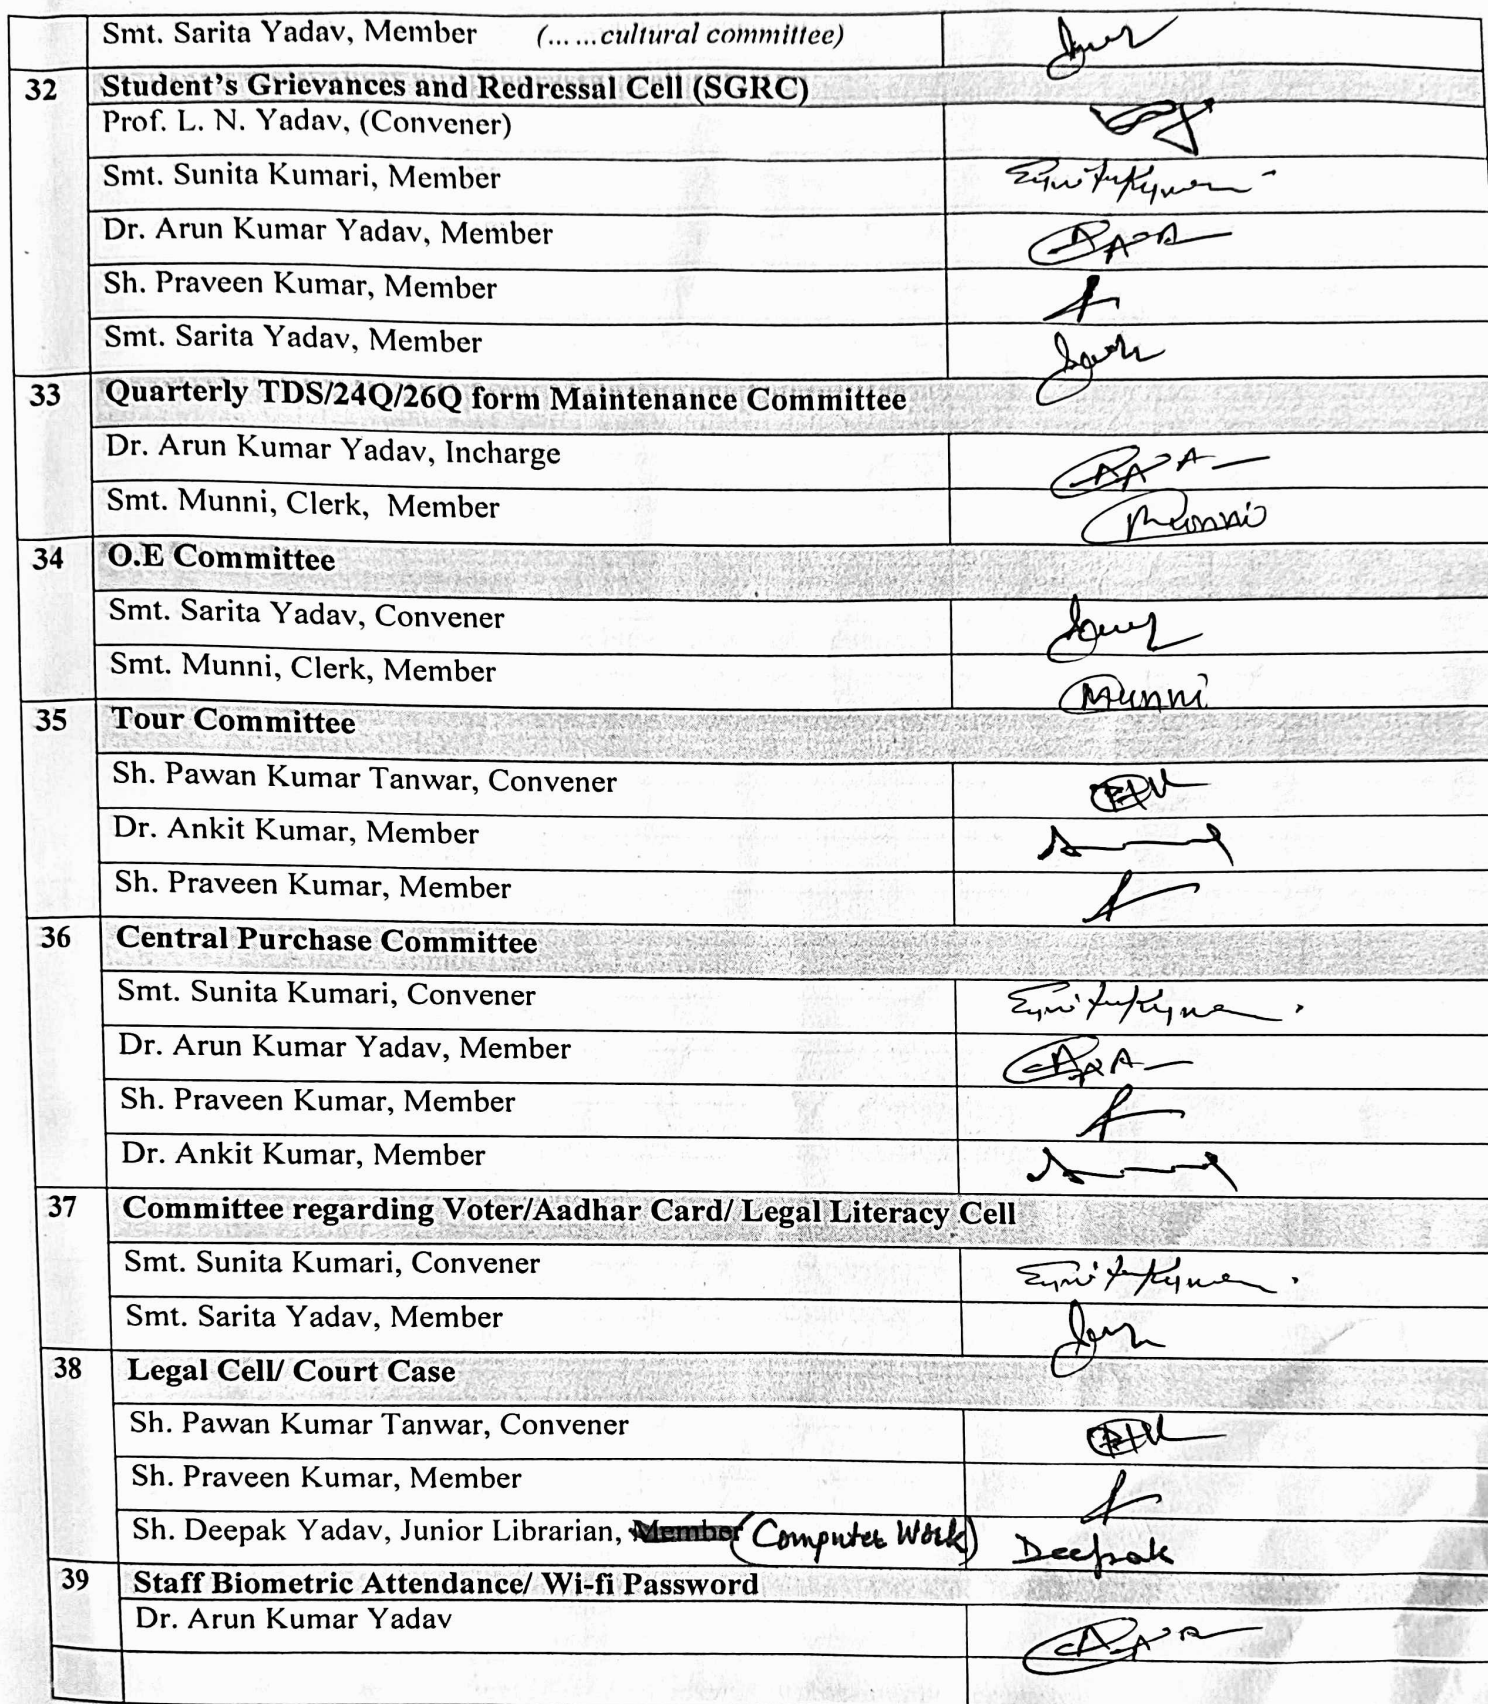 Smt. Sarita Yadav, Member (... ...cultural committee)
32 Student's Grievances and Redressal Cell (SGRC)
Prof. L. N. Yadav, (Convener)
Smt. Sunita Kumari, Member
Dr. Arun Kumar Yadav, Member
Sh. Praveen Kumar, Member
Smt. Sarita Yadav, Member
33 Quarterly TDS/24Q/26Q form Maintenance Committee
Dr. Arun Kumar Yadav, Incharge
Smt. Munni, Clerk, Member Munni
34 O.E Committee
Smt. Sarita Yadav, Convener
Smt. Munni, Clerk, Member Munni
35 Tour Committee
Sh. Pawan Kumar Tanwar, Convener
Dr. Ankit Kumar, Member
Sh. Praveen Kumar, Member
36 Central Purchase Committee
Smt. Sunita Kumari, Convener
Dr. Arun Kumar Yadav, Member
Sh. Praveen Kumar, Member
Dr. Ankit Kumar, Member
37 Committee regarding Voter/Aadhar Card/ Legal Literacy Cell
Smt. Sunita Kumari, Convener
Smt. Sarita Yadav, Member
38 Legal Cell/ Court Case
Sh. Pawan Kumar Tanwar, Convener
Sh. Praveen Kumar, Member
Sh. Deepak Yadav, Junior Librarian, Member (Computer Work) Deepak
39 Staff Biometric Attendance/ Wi-fi Password
Dr. Arun Kumar Yadav